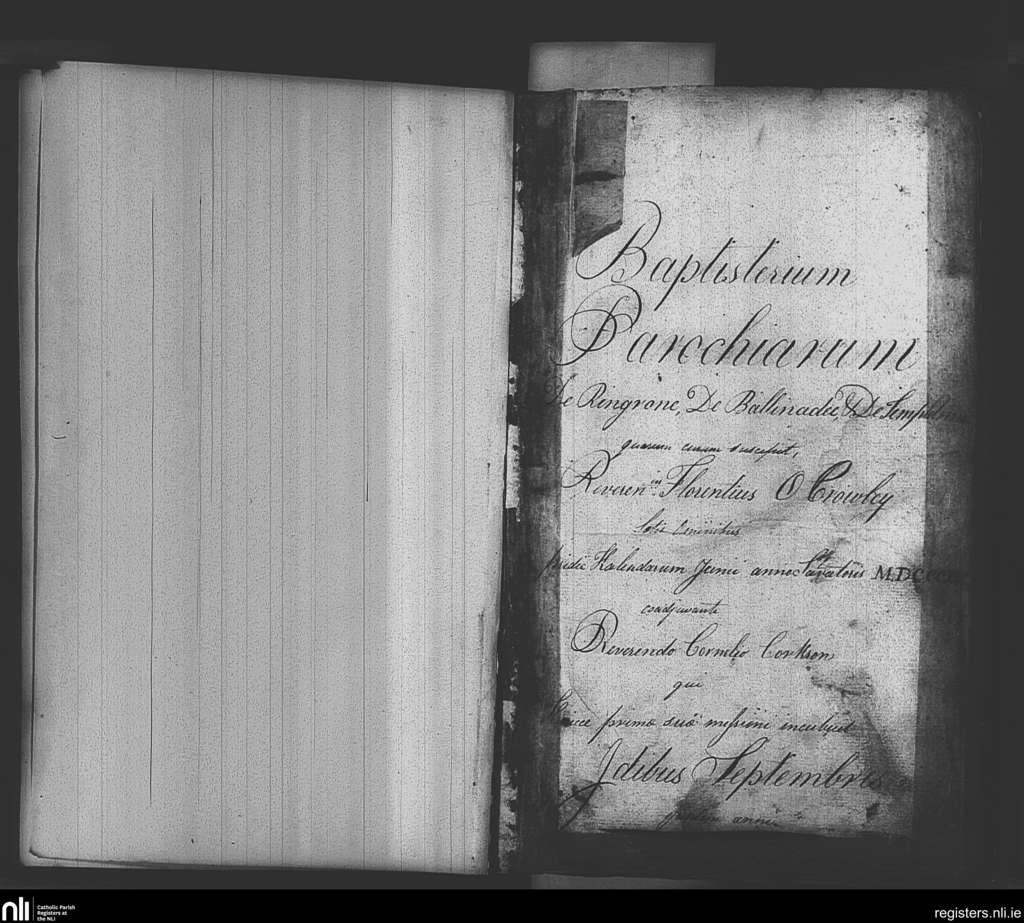 Baptisterium
Parochiarum
De Ringrone, De Ballinadee, & De
quarum curam suscepit,
Reveren^us Florentius O Crowley
pridie Kalendarum Junii anno Salvatoris MDCCC
coadjuvante
Reverendo Cornelio Corkron
qui
primo suo incubuit
Idibus Septembris
anni
nli Catholic Parish
Registers at
the NLI
registers.nli.ie